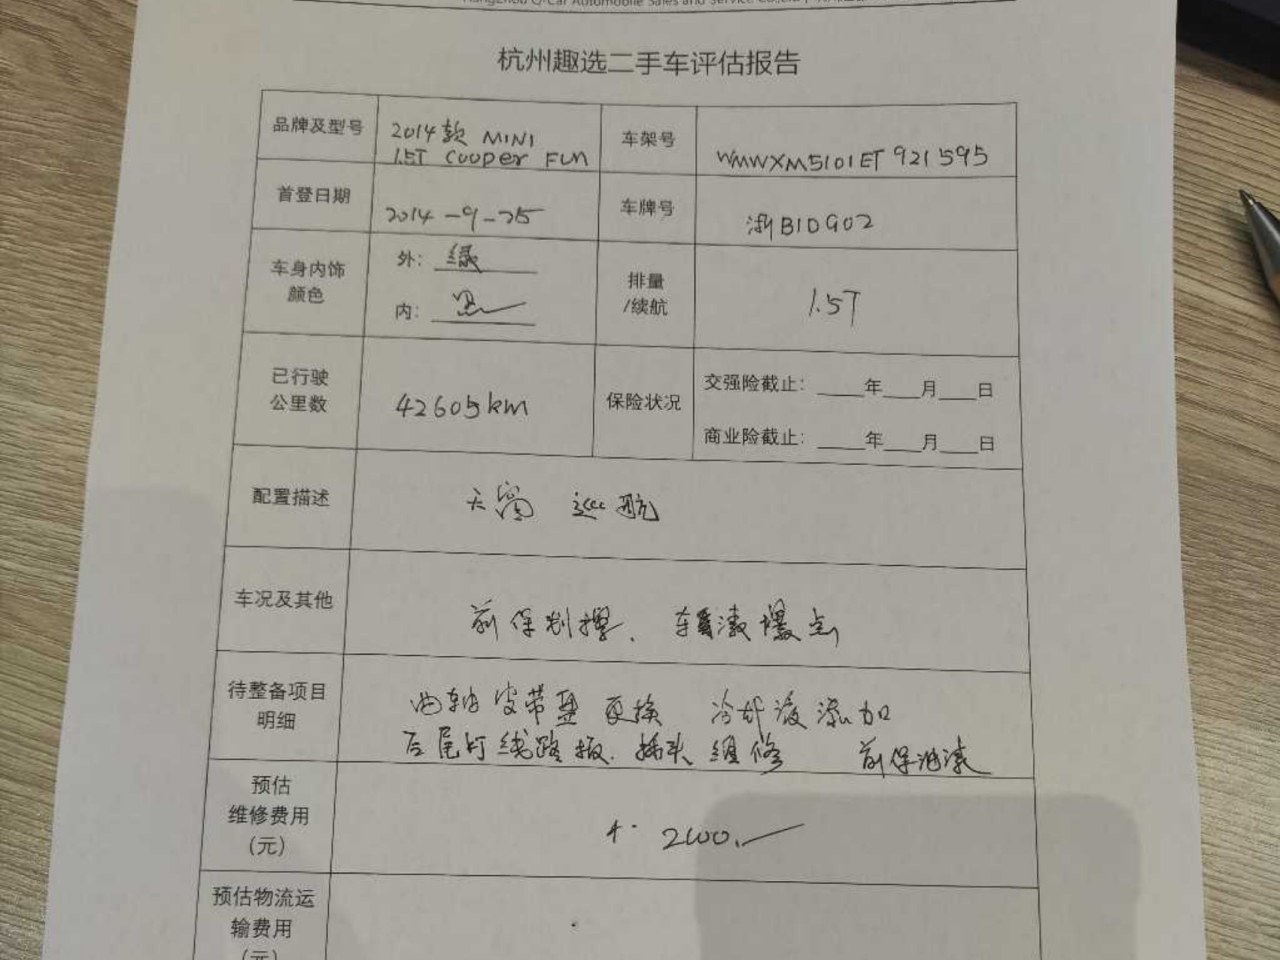 Hangzhou Q-Car Automobile Sales and Service Co.,Ltd
杭州趣选二手车评估报告
品牌及型号 2014款 MINI 1.5T Cooper Fun 车架号 WMWXM5101ET921595
首登日期 2014-9-25 车牌号 浙B1D902
车身内饰颜色 外: 绿 排量/续航 1.5T
内: 黑
已行驶公里数 42605km 保险状况 交强险截止: ____年___月___日
商业险截止: ____年___月___日
配置描述 天窗 巡航
车况及其他 前保划擦. 车漆爆点
待整备项目明细 曲轴皮带盘更换 冷却液添加
后尾灯线路板. 插头维修 前保油漆
预估
维修费用
(元)
预估物流运
输费用
(元)